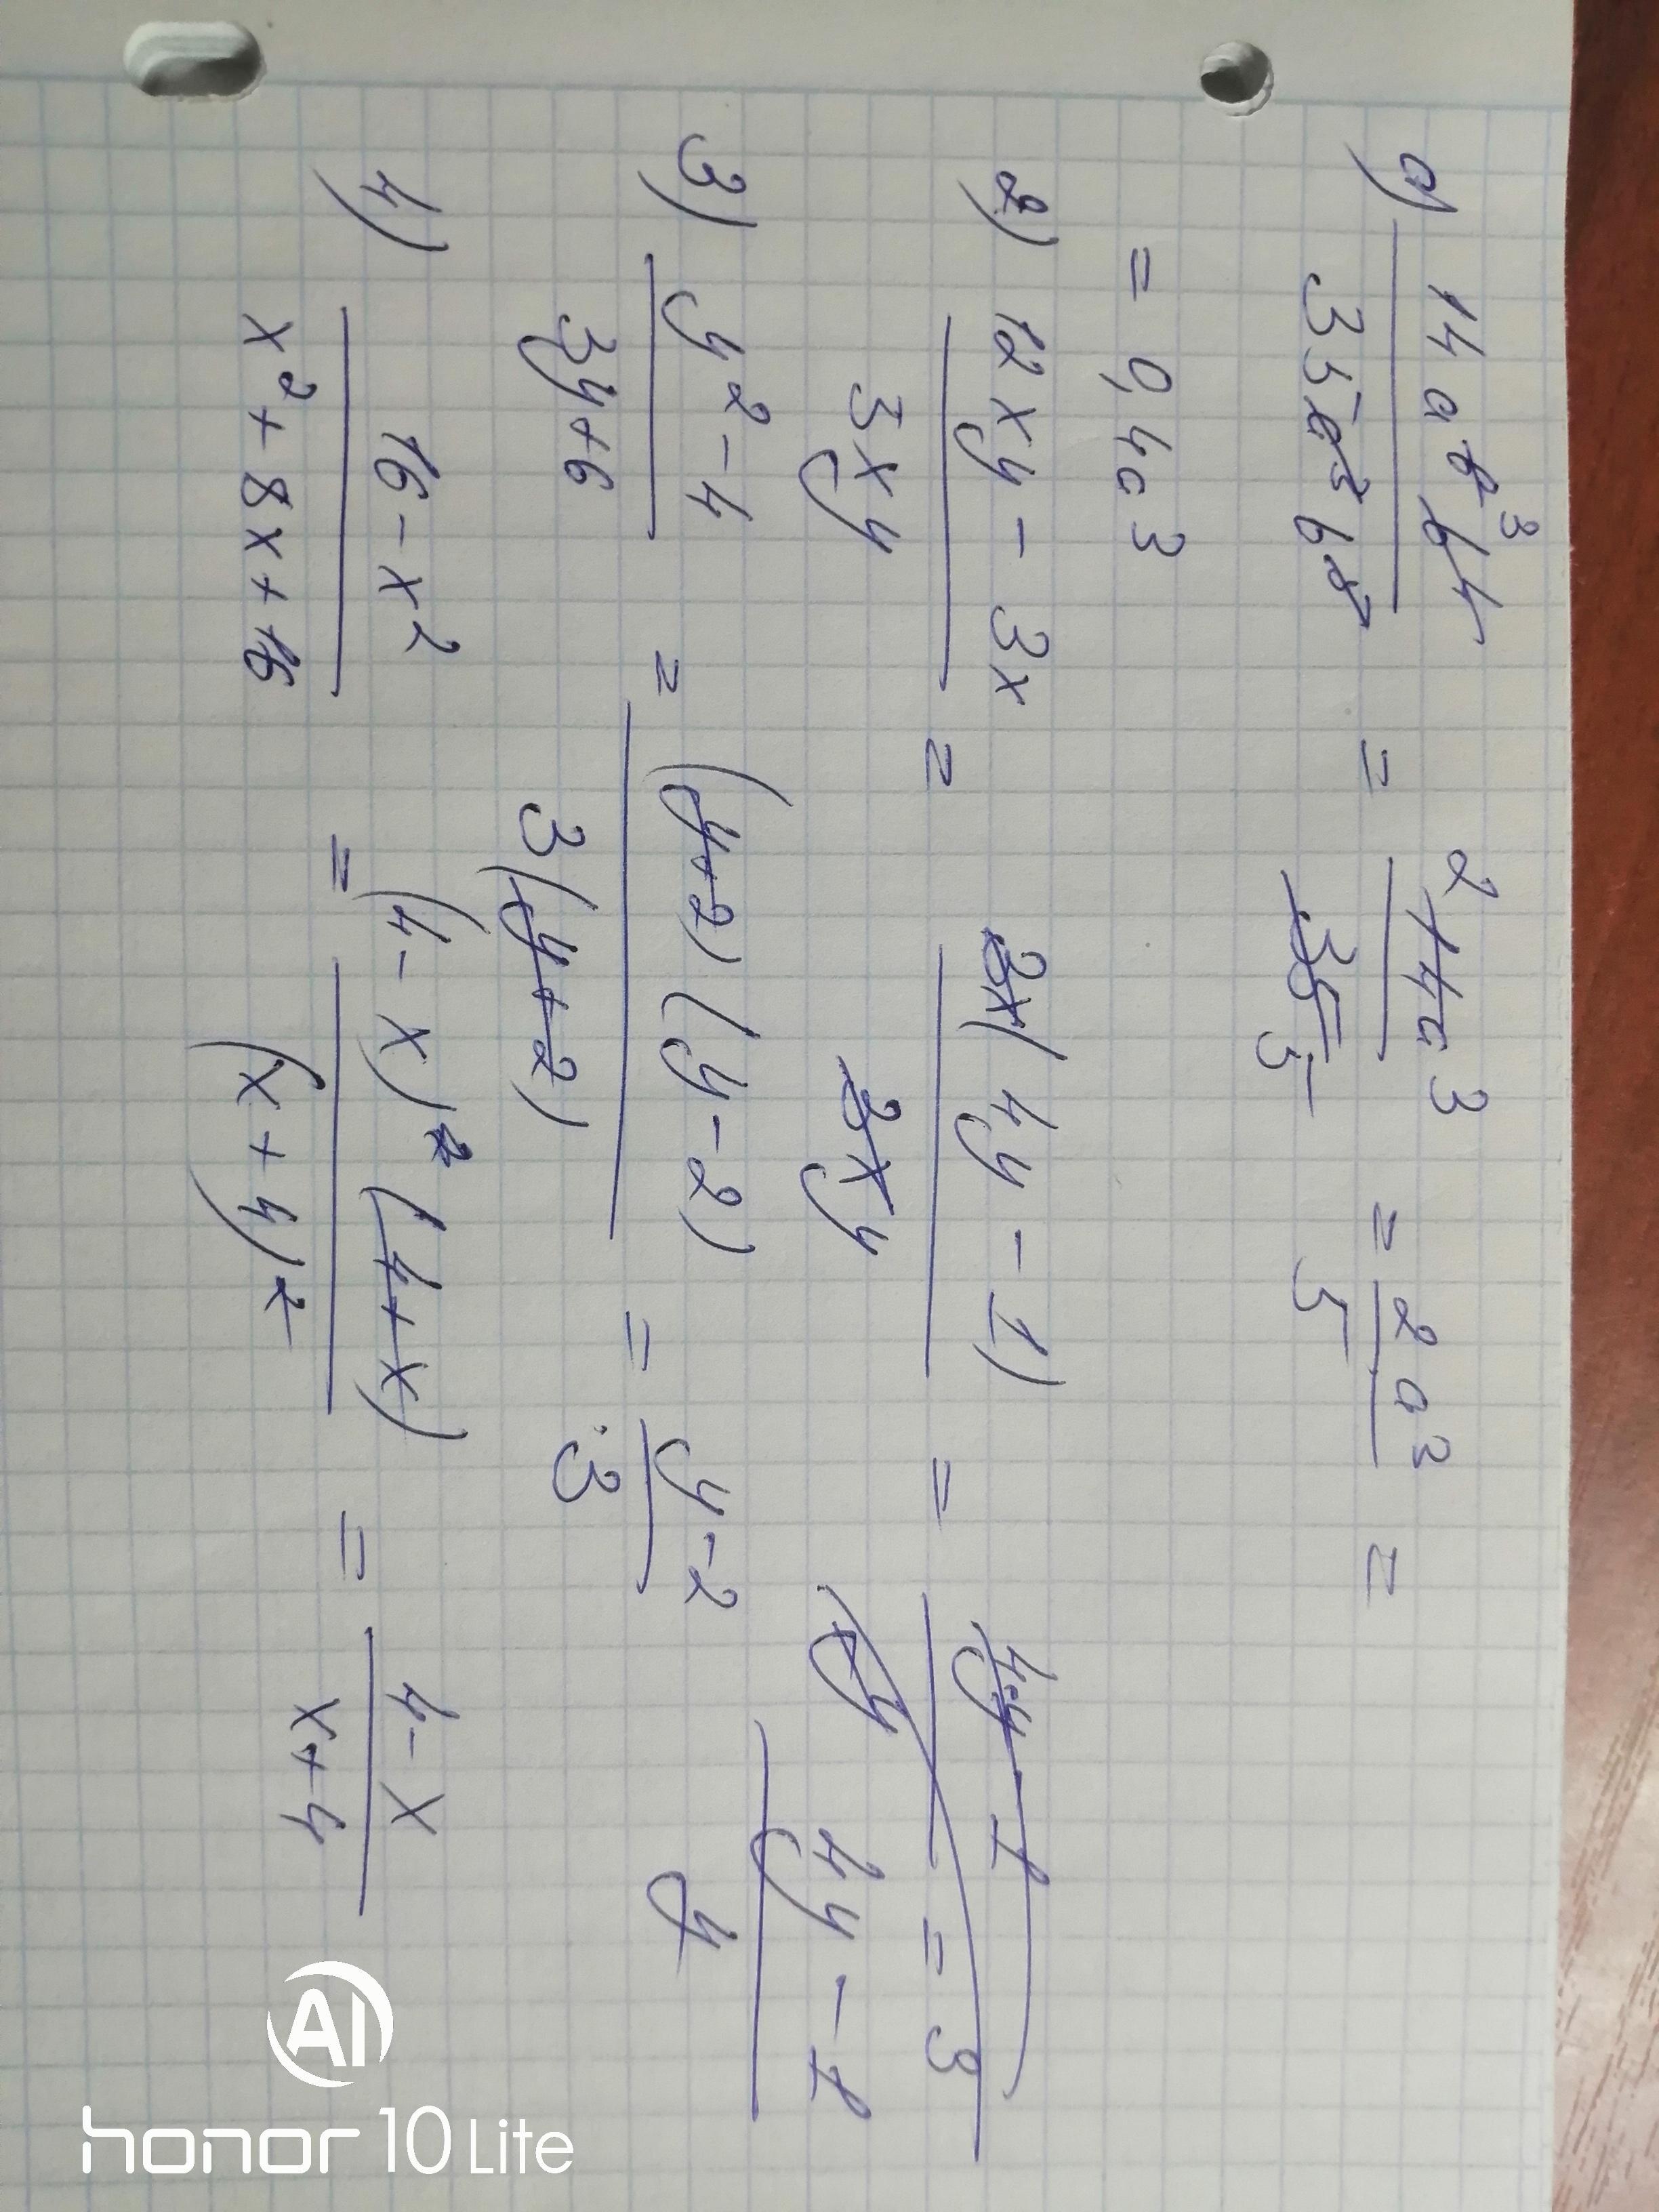 а) 14a⁶³b⁴ / 35a³b⁴ = ²14a³ / 35 5 = 2a³ / 5 =
= 0,4a³
2) 12xy - 3x / 3xy = 3x(4y - 1) / 3xy = 4y - 1 / xy = 3
4y - 1 / y
3) y² - 4 / 3y + 6 = (y+2)(y-2) / 3(y+2) = y-2 / 3
4) 16 - x² / x² + 8x + 16 = (4-x)(4+x) / (x+4)² = 4-x / x+4
AI honor 10 Lite